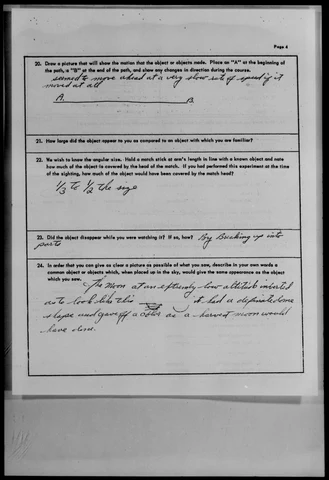 Page 4
20. Draw a picture that will show the motion that the object or objects made. Place an "A" at the beginning of
the path, a "B" at the end of the path, and show any changes in direction during the course.
seemed to move ahead at a very slow rate of speed if it
moved at all
A. B.
21. How large did the object appear to you as compared to an object with which you are familiar?
22. We wish to know the angular size. Hold a match stick at arm's length in line with a known object and note
how much of the object is covered by the head of the match. If you had performed this experiment at the time
of the sighting, how much of the object would have been covered by the match head?
1/3 to 1/2 the size
23. Did the object disappear while you were watching it? If so, how? By Breaking up into
parts
24. In order that you can give as clear a picture as possible of what you saw, describe in your own words a
common object or objects which, when placed up in the sky, would give the same appearance as the object
which you saw.
The Moon at an extremely low altitude inverted
as to look like this it had a definite dome
shape and gave off a color as a harvest moon would
have done.